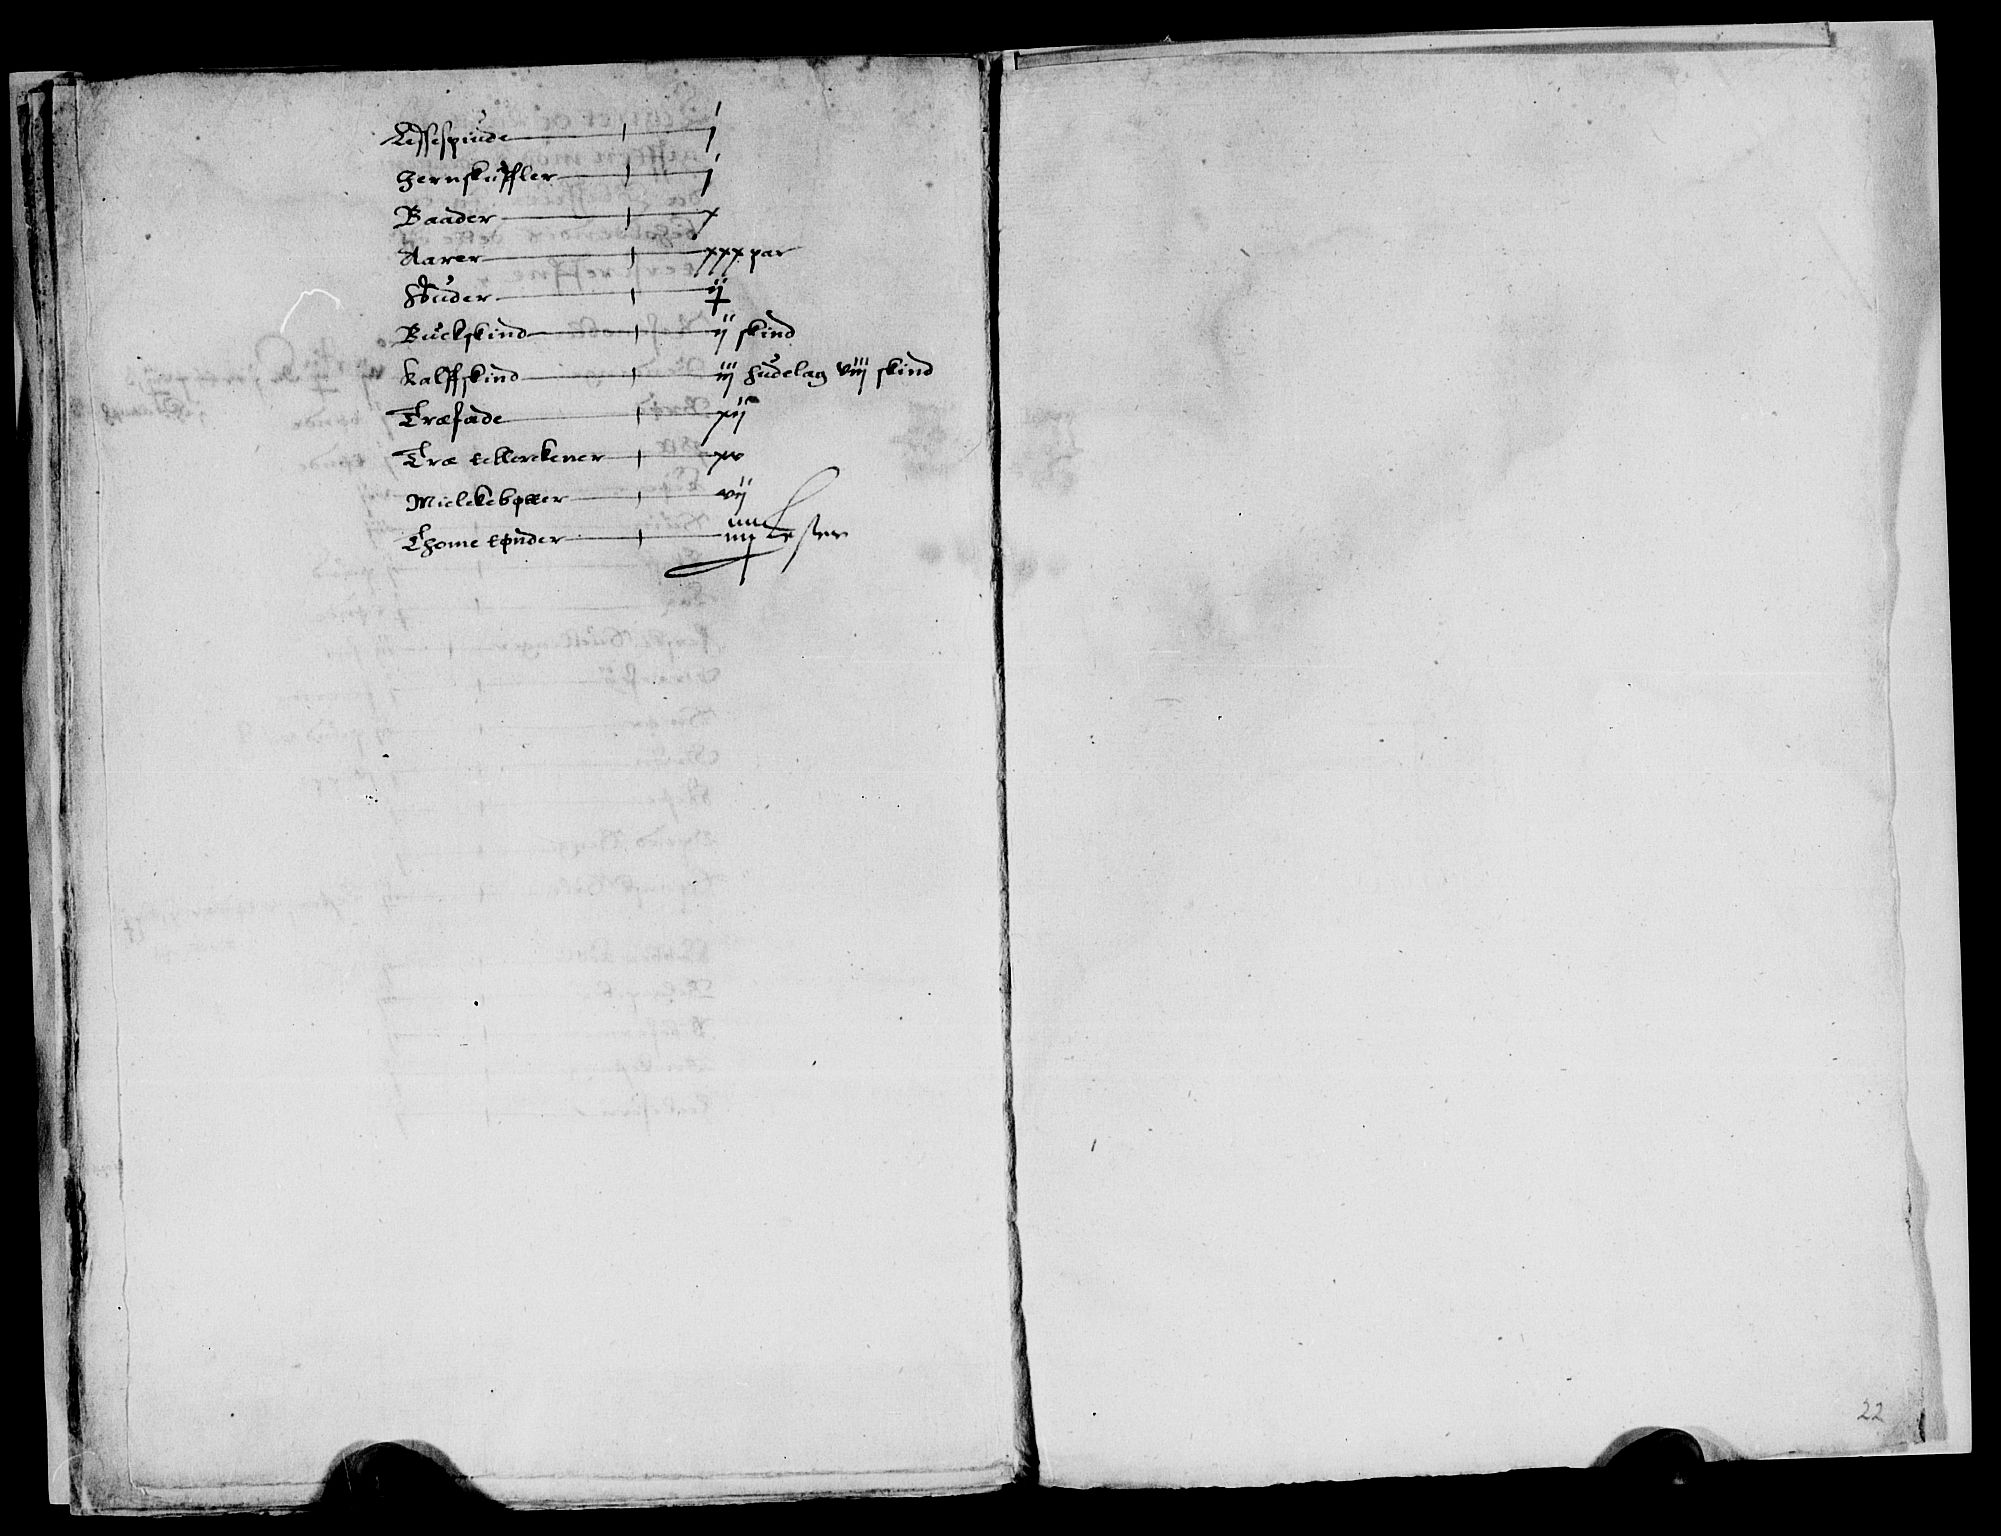 Leffespiude — j
Jernskuffler — j
Baader — x
Aarer — xxx par
Huder — ij
Buckskind — ij skind
Kalffskind — iij hudelag viij skind
Træfade — xij
Træ tellerckener — xv
Mielckebøtter — vij
Thome tønder — iiij Lester
22